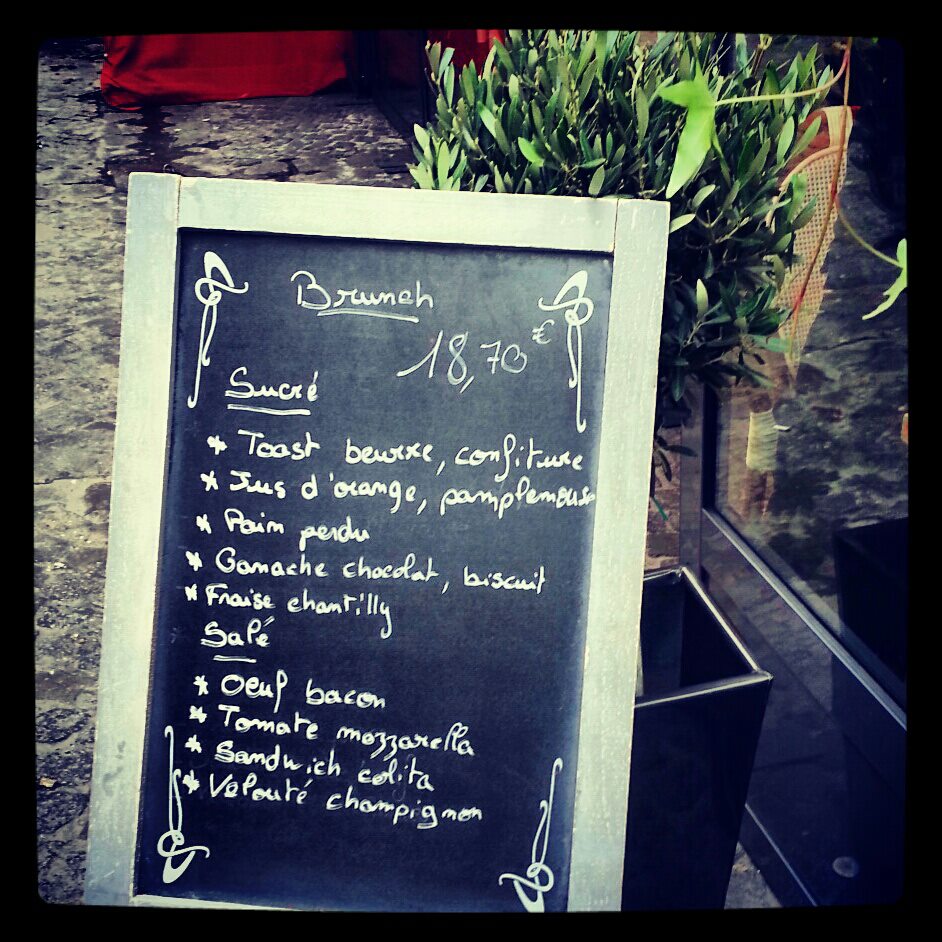 Brunch
18,70 €
Sucré
* Toast beurre, confiture
* Jus d'orange, pamplemousse
* Pain perdu
* Ganache chocolat, biscuit
* Fraise chantilly
Salé
* Oeuf bacon
* Tomate mozzarella
* Sandwich colita
* Velouté champignon